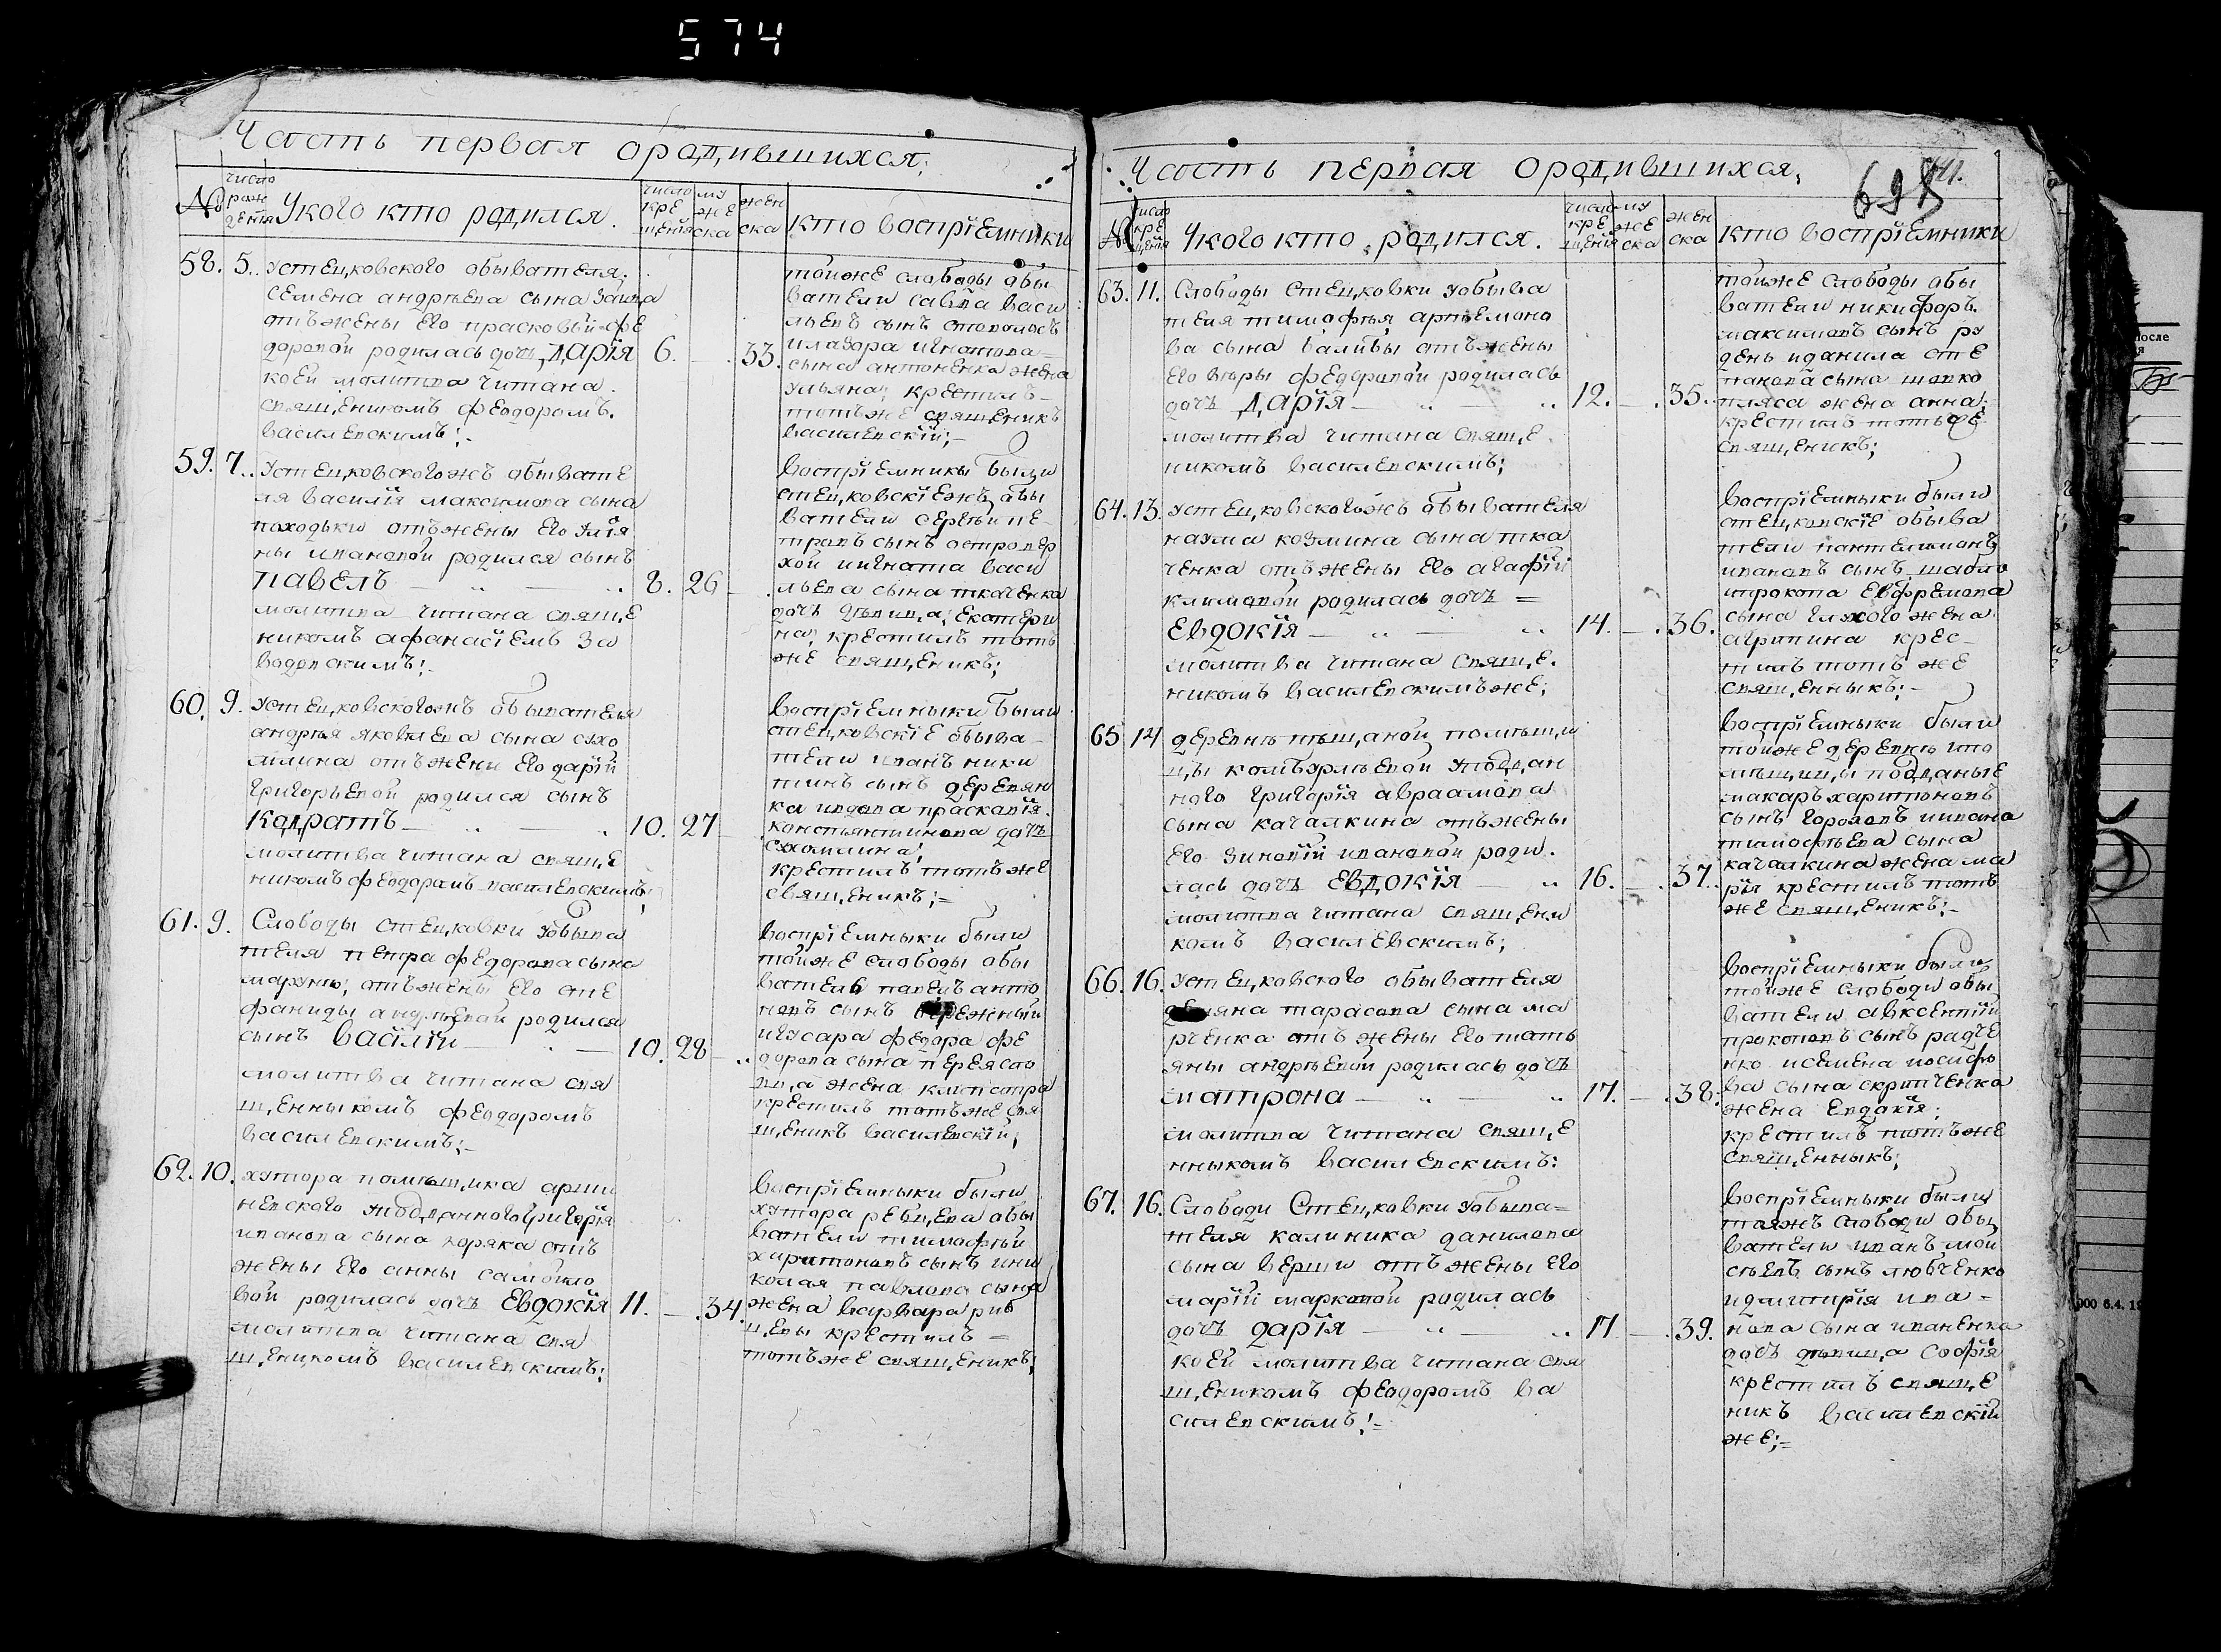 574
Часть первая ородившихся;
№ число рож денїя Укого кто родился. число кре щенїя му же ска жен ска кто воспрїемники
58. 5. Устецковского обывателя
семена андрѣева сына
отъ жены его прасковьи фе
доровой родилась дочь Дарїя 6. — 33.
коей молитва читана
священикомъ феодоромъ
василевскимъ;
тойже слободы обы
ватели савва васи
льевъ сынъ
илазора игнатова
сына антоненка жена
ульяна; крестилъ
тотъже священикъ
василевскїй;
59. 7. Устецковскогожъ обывате
ля василїя максимова сына
походьки отъ жены его улїя
ны ивановой родился сынъ
павелъ 8. 26
молитва читана свяще
никомъ афанасїемъ За
водовскимъ;
воспрїемники были
стецковскїежъ обы
ватели сергѣй пе
тровъ сынъ островер
хой иигната васи
льева сына ткаченка
дочь дѣвица; Екатери
на; крестилъ тотъ
же священикъ;
60. 9. Устецковскогожъ обывателя
андрѣя яковлева сына сухо
млина отъ жени его дарїй
григорьевой родился сынъ
Кодратъ 10. 27
молитва читана свяще
никомъ феодоромъ василевскимъ;
воспрїемныки были
стецковскїе обыва
тели иванъ ники
тинъ сынъ деревян
ка ивдова прасковїя
константинова дочь
сухомлина;
крестилъ тотъ же
священикъ;
61. 9. Слободы стецковки уобыва
теля петра федорова сына
отъ жены его сте
фаниды андрѣевой родился
сынъ Васїлїй 10. 28
молитва читана свя
щенныкомъ феодоромъ
василевскимъ;
воспрїемныки были
тойже слободы обы
ватели павелъ анто
новъ сынъ
игусара федора фе
дорова сына переясло
вца жена клеопатра
крестилъ тотъже свя
щеникъ василевскїй;
62. 10. хутора помѣщика арши
невского уподданного григорїя
иванова сына коряка отъ
жены его анны самойло
вой родилась дочь Евдокїя 11. — 34.
молитва читана свя
щеникомъ василевскимъ;
воспрїемныки были
хутора рєвцева обы
ватели тимофѣй
харитоновъ сынъ ини
колая павлова сына
жена варвара
крестилъ
тотъже священикъ;
Часть первая ородившихся;
№ число кре щенїя Укого кто родился. число кре щенїя му же ска жен ска кто воспрїемники
63. 11. Слободы стецковки уобыва
теля тимофѣя артемоно
ва сына валивы отъ жены
его вѣры федоровой родилась
дочь Дарїя 12. — 35.
молитва читана свяще
никомъ василевскимъ;
тойже слободы обы
ватели никифоръ
максимовъ сынъ ру
день иданила сте
панова сына шапко
пляса жена анна;
крестилъ тотъже
священикъ;
64. 13. Устецковскогожъ обывателя
наума козмина сына тка
ченка отъ жены его агафїй
климовой родилась дочь =
Евдокїя 14. — 36.
молитва читана свяще
никомъ василевскимъже;
воспрїемныки были
стецковскїе обыва
тели пантелимонъ
ивановъ сынъ шабло
ипрокопа Евфремова
сына глухого жена
агрипина крес
тилъ тотъ же
священныкъ;
65 14 деревнѣ пѣщаной помѣщи
цы комбурлѣевой уподдан
ного григорїя авраамова
сына качалкина отъ жены
его зиновїй ивановой роди
лась дочь Евдокїя 16. — 37.
молитва читана священи
комъ василевскимъ;
воспрїемныки были
тойже деревнѣ ипо
мѣщицы подданые
макаръ харитоновъ
сынъ гороховъ иивана
тимофѣева сына
качалкина жена ма
рїя крестилъ тотъ
же священикъ;
66. 16. Устецковского обывателя
демяна тарасова сына ма
рченка отъ жены его татья
яны андрѣевой родилась дочь
матрона 17. — 38.
молитва читана свяще
нныкомъ василевскимъ:
воспрїемныки были
тойже слободи обы
ватели авксентїй
прокоповъ сынъ радче
нко исемена иосифо
ва сына скрипченка
жена Евдокїя;
крестилъ тотъже
священныкъ;
67. 16. Слободи Стецковки уобыва=
теля калиника данилова
сына верши отъ жены его
марїй марковой родилась
дочь дарїя 17 — 39.
коей молитва читана свя
щеникомъ феодоромъ ва
силевскимъ;
воспрїемныки были
тояжъ слободи обы
ватели иванъ мои
сѣевъ сынъ любченко
идмитрїя ива=
нова сына иваненка
дочь дѣвица софїя
крестилъ свяще
никъ василевскїй
же;